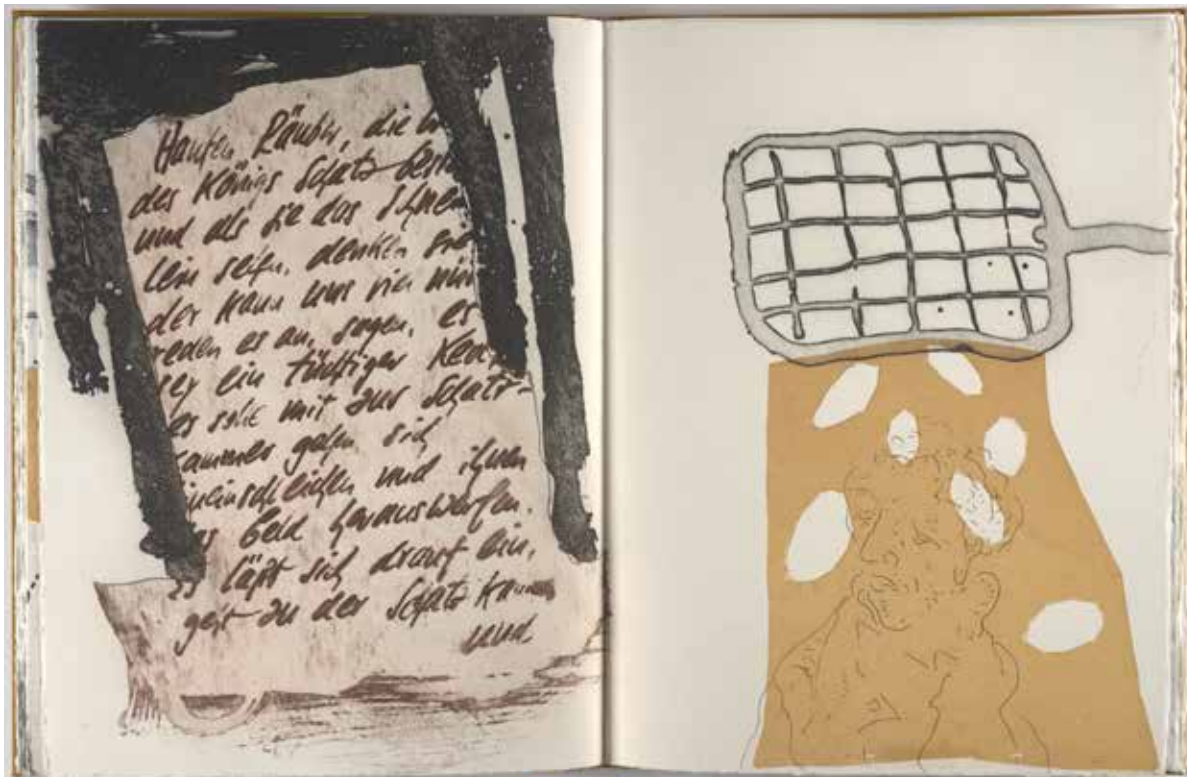 Haufen Räuber, die
des Königs Schatz
und als sie das
lein sehen, denken sie
der kann uns viel
reden es an, sagen, es
sey ein tüchtiger
es solle mit zur Schatz-
kammer gehen sich
hineinschleichen und ihnen
das Geld herauswerfen.
es läßt sich drauf ein,
geht zu der Schatz
und